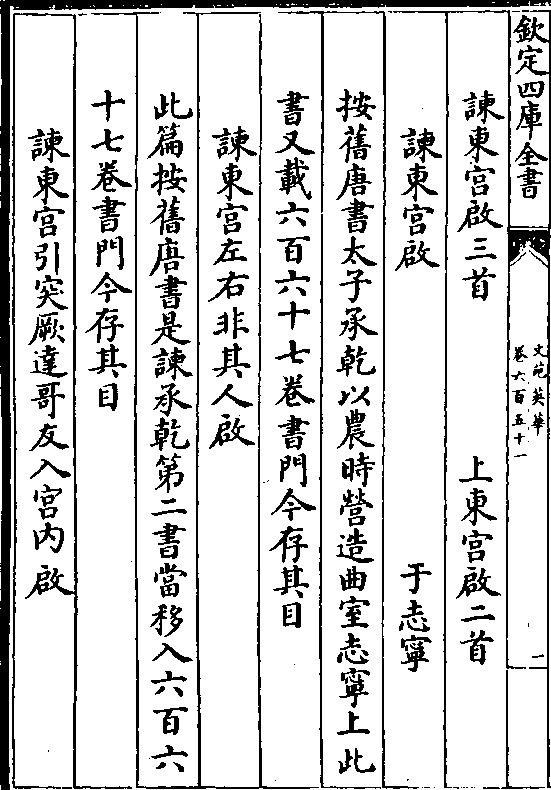 欽定四庫全書
文苑英華
卷六百五十一
一
諫東宮啟三首　上東宮啟二首
諫東宮啟　于志寧
按舊唐書太子承乾以農時營造曲室志寧上此
書又載六百六十七卷書門今存其目
諫東宮左右非其人啟
此篇按舊唐書是諫承乾第二書當移入六百六
十七卷書門今存其目
諫東宮引突厥達哥友入宮內啟